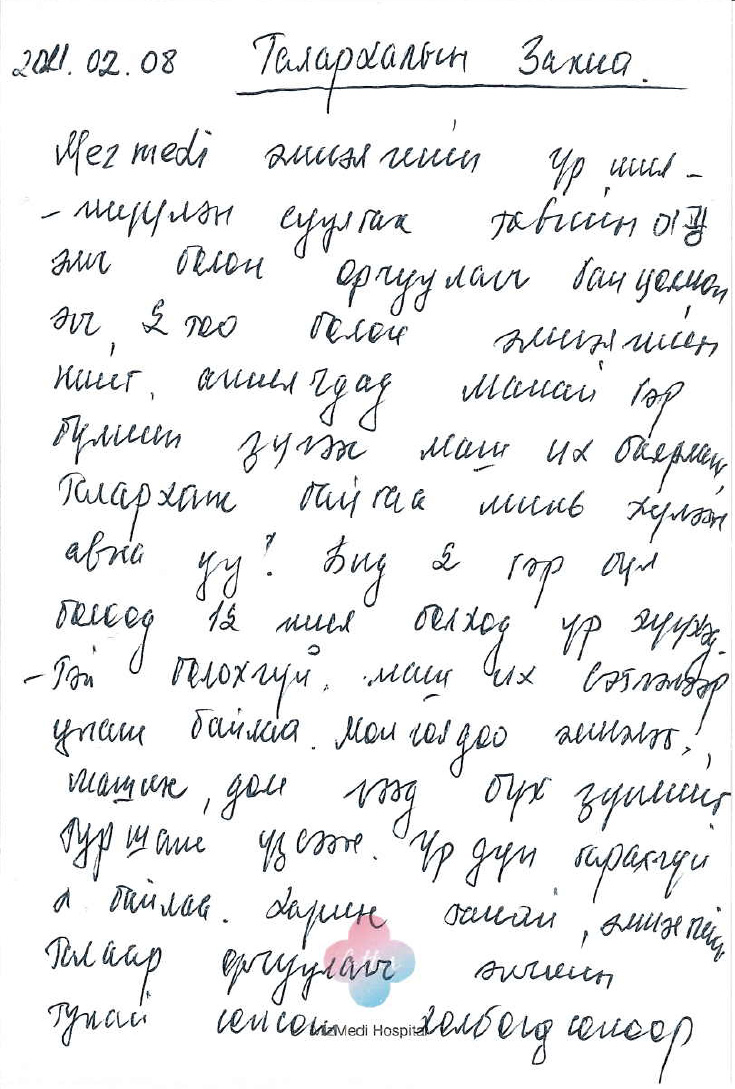 2021.02.08 Талархалын Захиа.
Mezmedi эмнэлгийн үр шил-
- жүүлэн суулгах тавсийн 이광
эмч болон орчуулагч Банцолмон
эгч, 2 тоо болон эмнэлгийн
нийт, ажилчдад манай гэр
бүлийн зүгээс маш их баярлаж,
Талархаж байгаа минь хүлээн
авна уу? Бид 2 гэр бүл
болоод 12 жил болход үр хүүхэд
- Тэй болохгүй. маш их сэтгэлээр
унаж байлаа. Монголдоо эмнэлэг,
машин, дом гээд бүх зүйлийг
Туршиж үзсэн. Үр дүн гарахгүй
л байлаа. Харин танай, эмнэлгийн
Талаар орчуулагч эгчийн
тухай сонсон холбогдсоноор
MizMedi Hospital